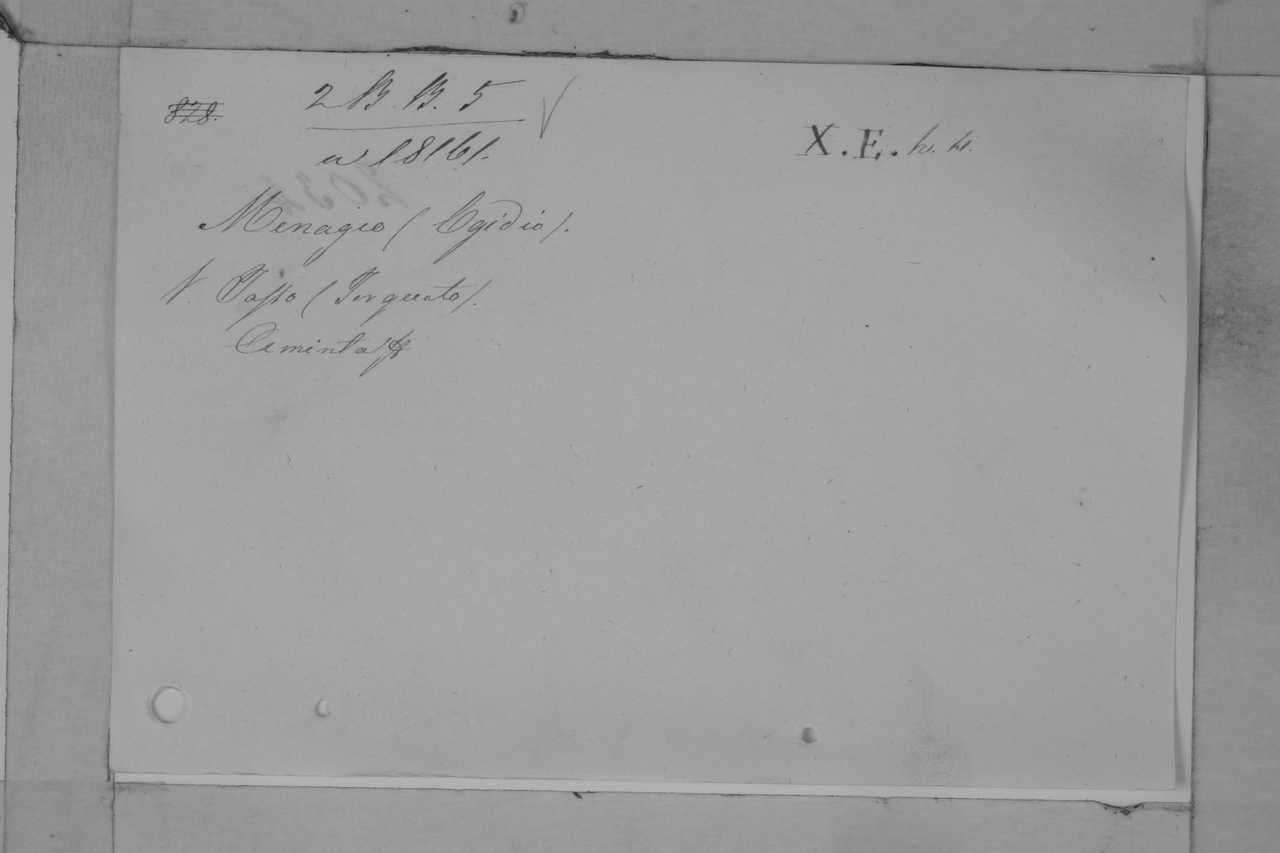 828.
2 B. B. 5
a 18161.
X.E.
Menagio (Egidio).
V. Tasso (Torquato).
Aminta